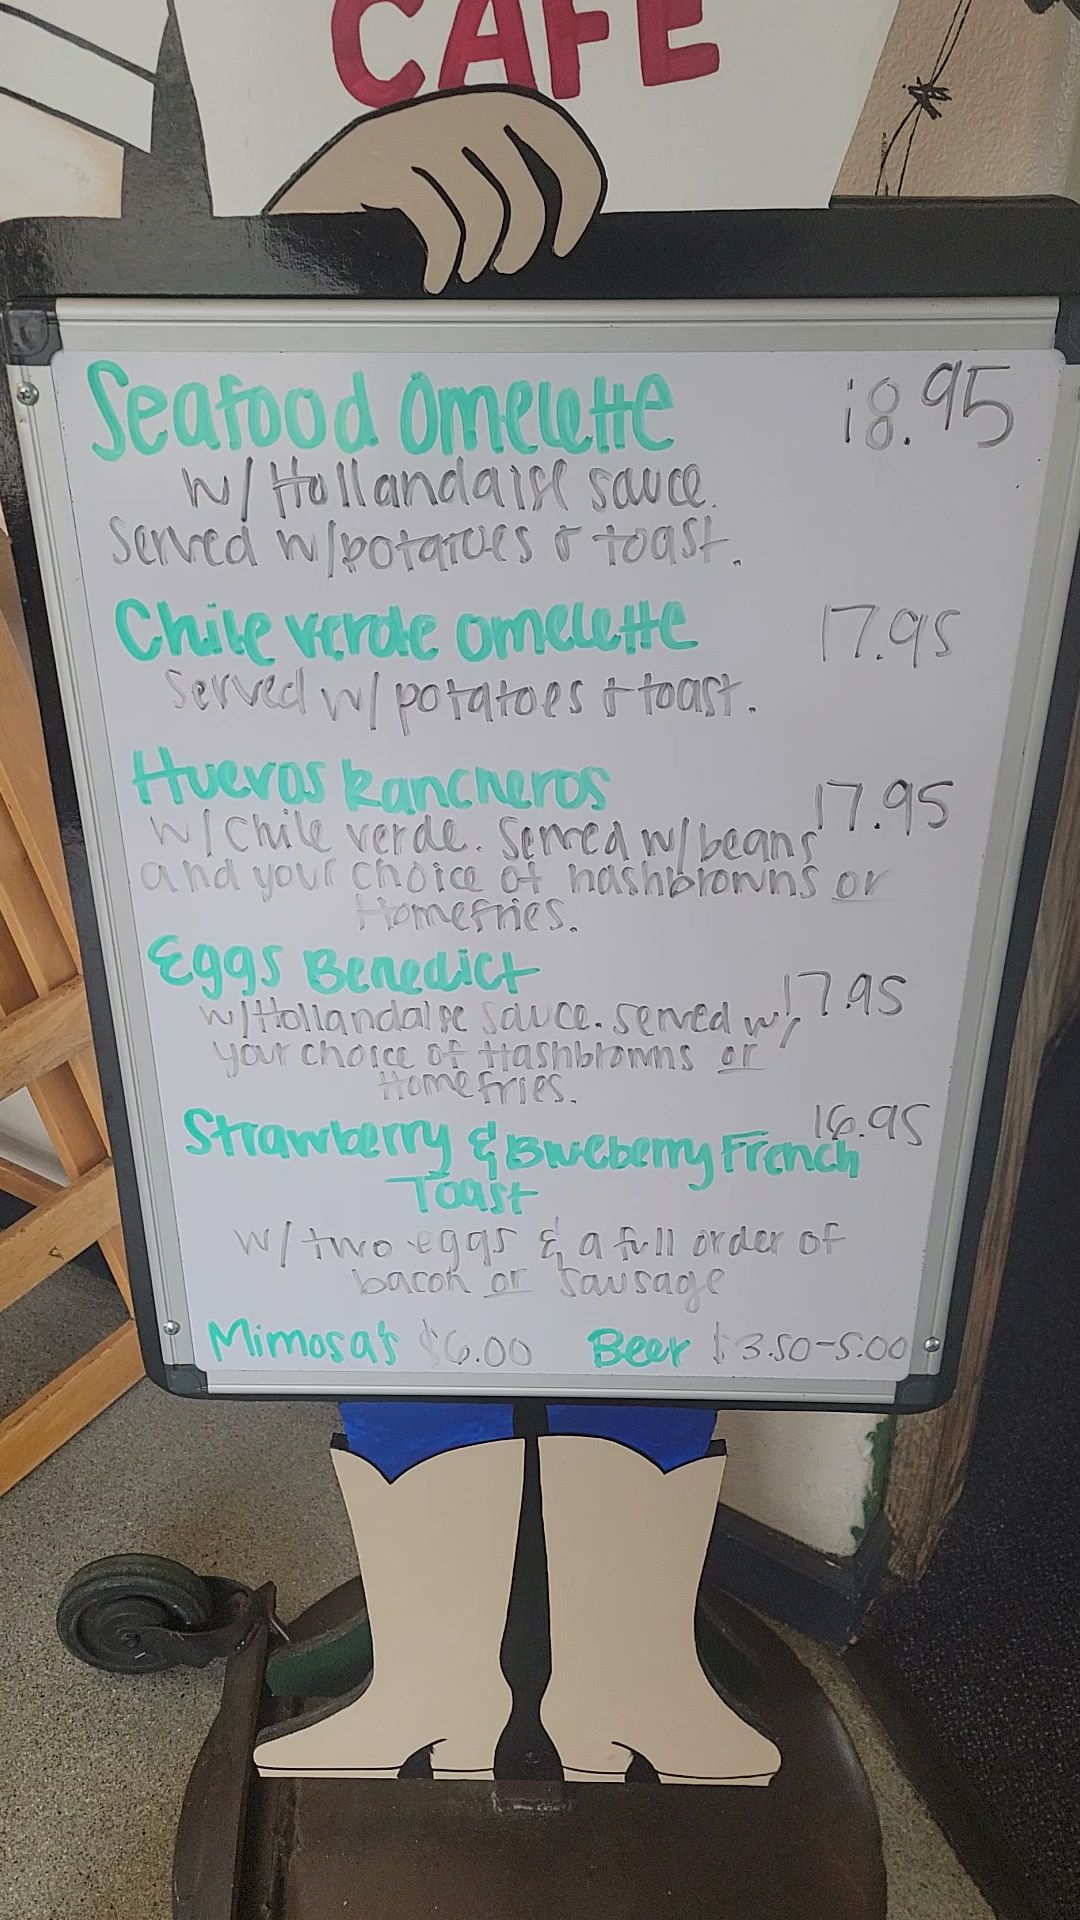 CAFE
Seafood Omelette 18.95
w/Hollandaise sauce.
Served w/potatoes & toast.
Chile verde omelette 17.95
Served w/ potatoes & toast.
Huevos Rancheros 17.95
w/Chile verde. Served w/beans
and your choice of hashbrowns or
Homefries.
Eggs Benedict 17.95
w/Hollandaise sauce. Served w/
your choice of Hashbrowns or
Homefries.
Strawberry & Blueberry French 16.95
Toast
w/ two eggs & a full order of
bacon or sausage
Mimosa's $6.00 Beer $3.50-5.00